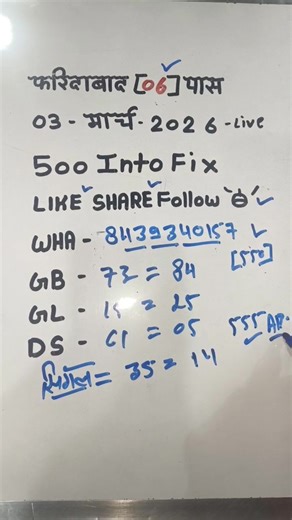 फरिदाबाद [06] पास
03 - मार्च - 2026 - Live
500 Into Fix
LIKE SHARE Follow
WHA - 8439340157
[550]
GB - 73 = 84
GL - 15 = 25
DS - 61 = 05
555 AB.
सिंगल = 35 = 14